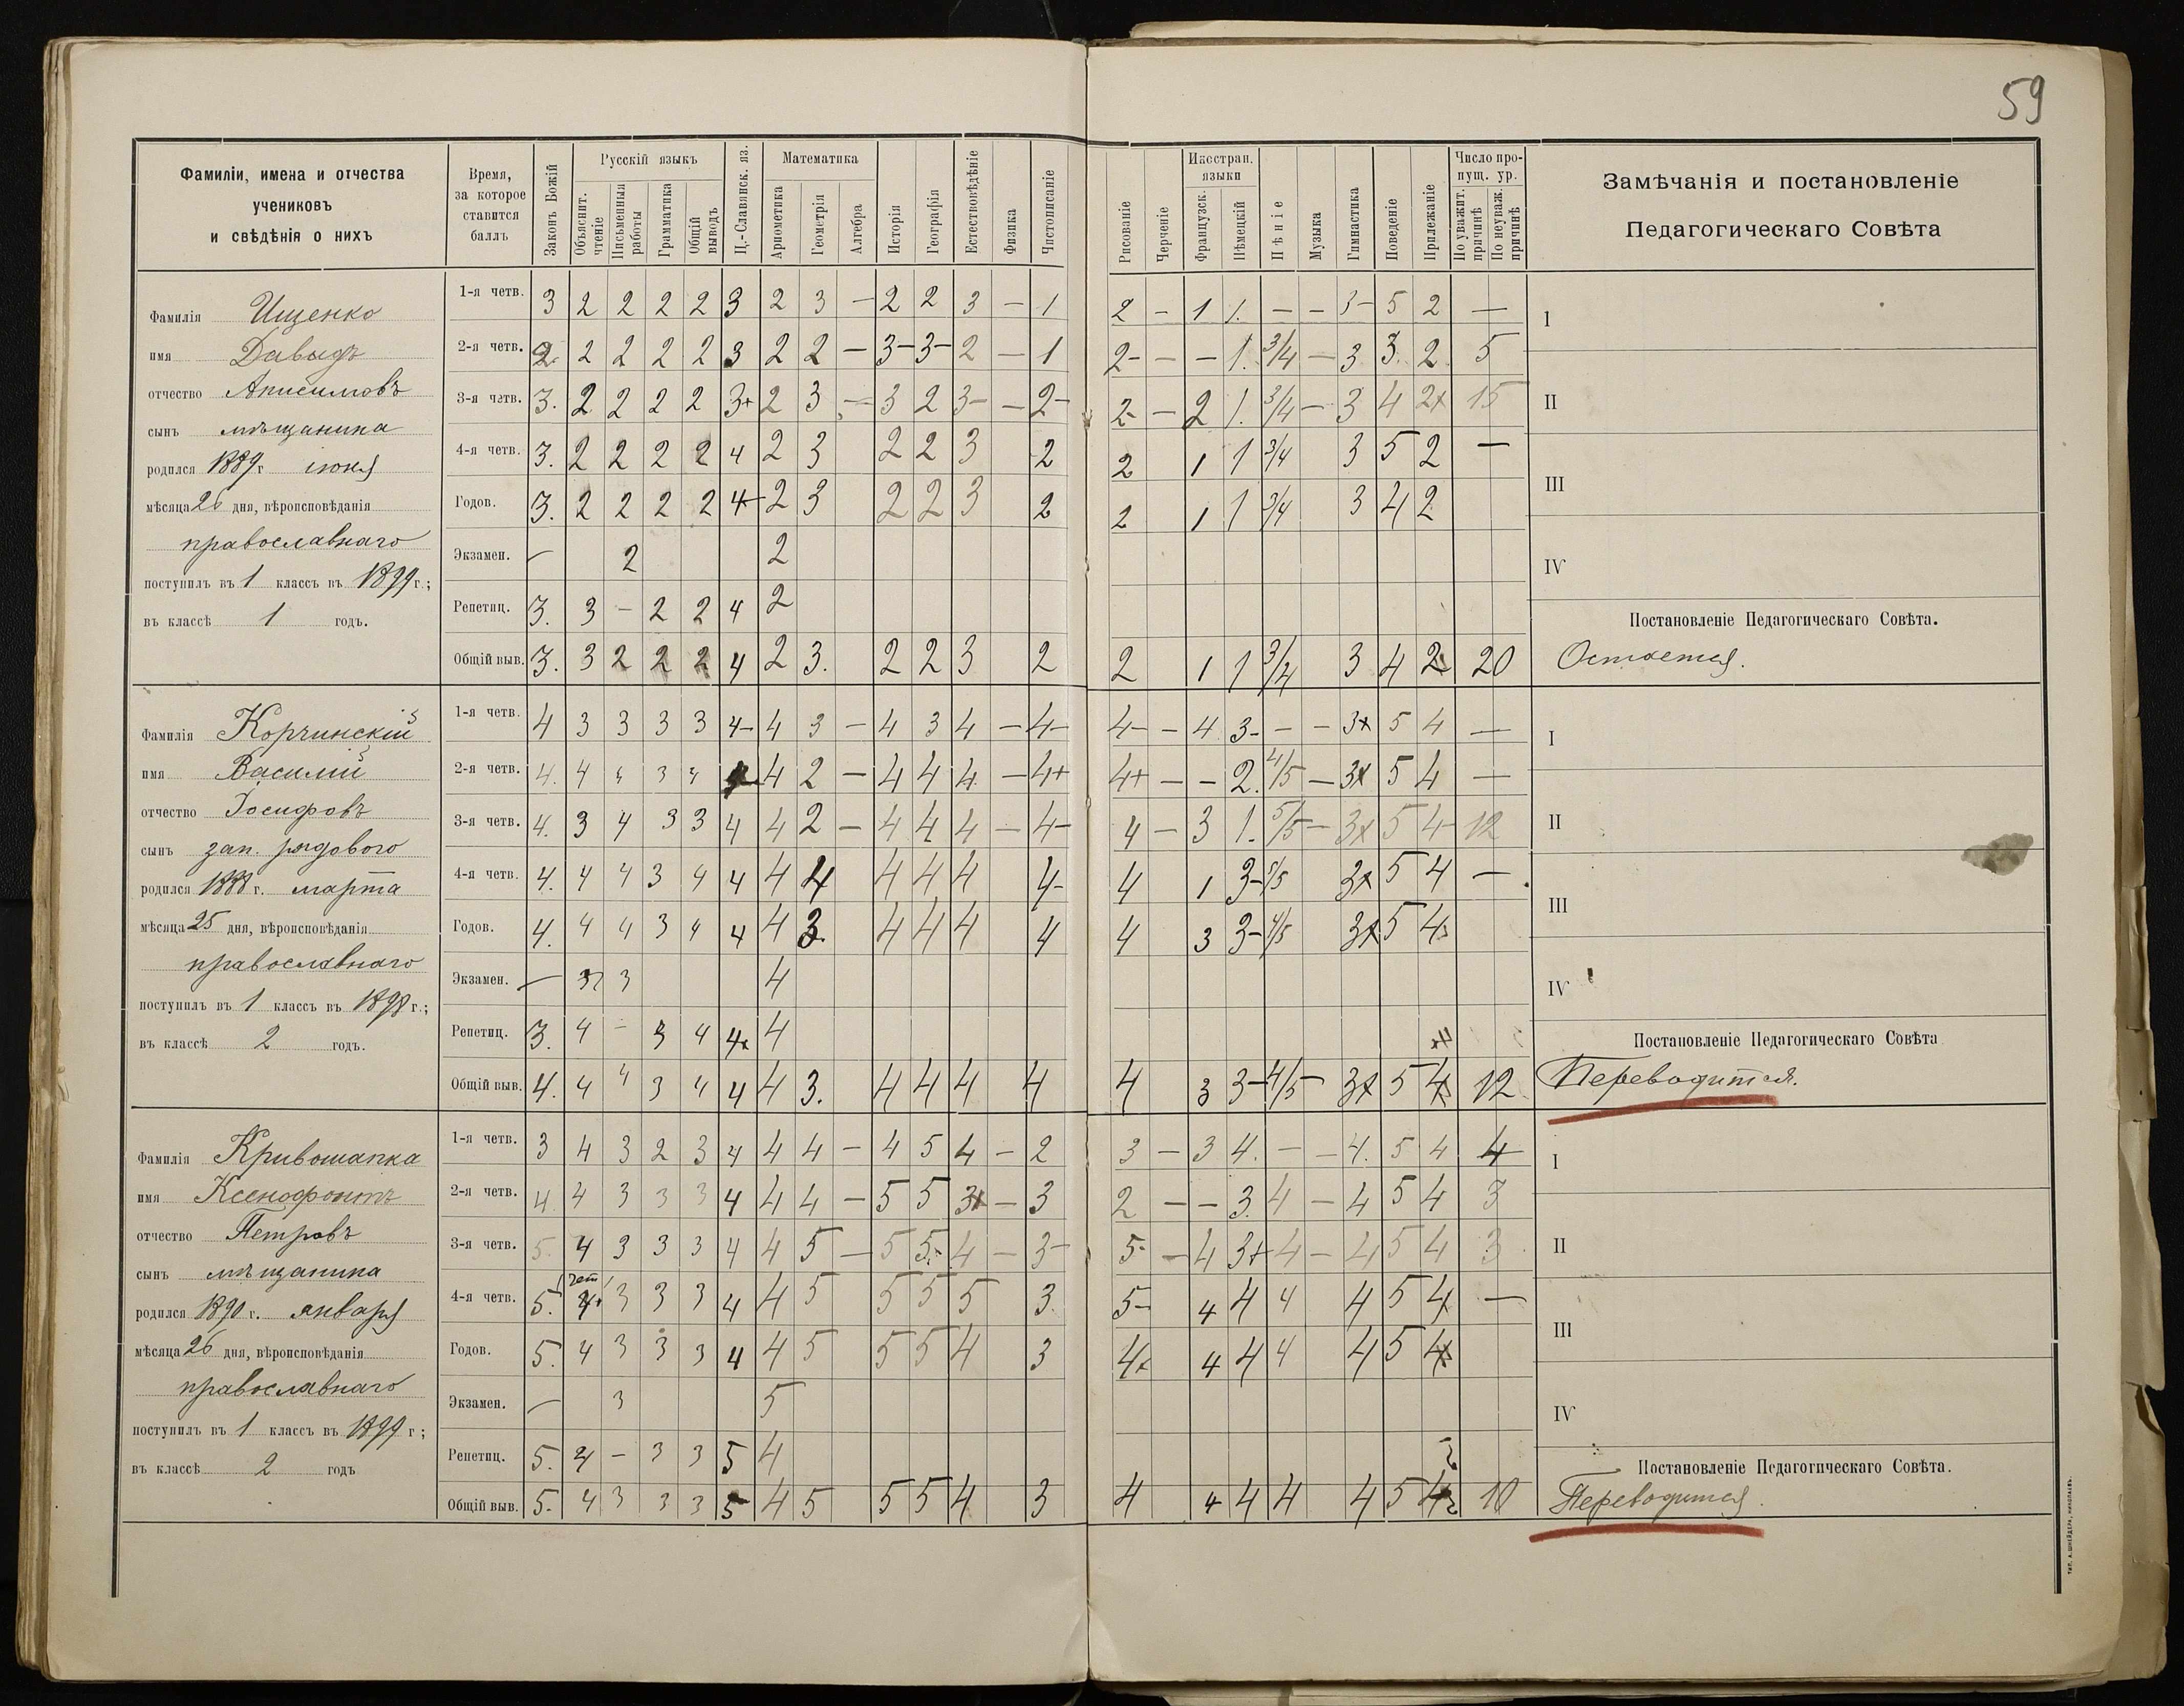 59
Фамиліи, имена и отчества
учениковъ
и свѣдѣнія о нихъ
Время,
за которое
ставится
баллъ
Законъ Божій
Русскій языкъ
Объяснит. чтеніе
Письменныя работы
Грамматика
Общій выводъ
Ц.-Славянск. яз.
Математика
Ариѳметика
Геометрія
Алгебра
Исторія
Географія
Естествовѣдѣніе
Физика
Чистописаніе
Рисованіе
Черченіе
Иностран. языки
Французск.
Нѣмецкій
Пѣніе
Музыка
Гимнастика
Поведеніе
Прилежаніе
Число пропущ. ур.
По уважит. причинѣ
По неуваж. причинѣ
Замѣчанія и постановленіе
Педагогическаго Совѣта
Фамилія Ищенко
имя Давыдъ
отчество Анисимовъ
сынъ мѣщанина
родился 1889 г. іюня
мѣсяца 26 дня, вѣроисповѣданія
православнаго
поступилъ въ 1 классъ въ 1899 г.;
въ классѣ 1 годъ.
1-я четв. 3 2 2 2 2 3 2 3 — 2 2 3 — 1 2 — 1 1. — — 3- 5 2 —
2-я четв. 2. 2 2 2 2 3 2 2 — 3- 3- 2 — 1 2- — — 1. 3/4 — 3 3. 2 5
3-я четв. 3. 2 2 2 2 3+ 2 3 — 3 2 3- — 2- 2- — 2 1. 3/4 — 3 4 2+ 15
4-я четв. 3. 2 2 2 2 4 2 3 2 2 3 2 2 1 1 3/4 3 5 2 —
Годов. 3. 2 2 2 2 4+ 2 3 2 2 3 2 2 1 1 3/4 3 4 2
Экзамен. — 2 2
Репетиц. 3. 3 — 2 2 4 2
Общій выв. 3. 3 2 2 2 4 2 3. 2 2 3 2 2 1 1 3/4 3 4 2 20
I
II
III
IV
Постановленіе Педагогическаго Совѣта.
Остается.
Фамилія Корчинскій
имя Василій
отчество Іосифовъ
сынъ зап. рядового
родился 1888 г. марта
мѣсяца 25 дня, вѣроисповѣданія
православнаго
поступилъ въ 1 классъ въ 1898 г.;
въ классѣ 2 годъ.
1-я четв. 4 3 3 3 3 4- 4 3 — 4 3 4 — 4- 4- — 4 3- — — 3+ 5 4 —
2-я четв. 4. 4 4 3 4 4 2 — 4 4 4 — 4+ 4+ — — 2. 4/5 — 3+ 5 4 —
3-я четв. 4. 3 4 3 3 4 4 2 — 4 4 4 — 4- 4 — 3 1. 5/5 — 3+ 5 4- 12
4-я четв. 4. 4 4 3 4 4 4 4 4 4 4 4- 4 1 3- 5/5 3+ 5 4 —
Годов. 4. 4 4 3 4 4 4 3. 4 4 4 4 4 3 3- 4/5 3+ 5 4
Экзамен. — 3 3 4
Репетиц. 3. 4 — 3 4 4+ 4
Общій выв. 4. 4 4 3 4 4 4 3. 4 4 4 4 4 3 3- 4/5- 3+ 5 4 12
I
II
III
IV
Постановленіе Педагогическаго Совѣта
Переводится.
Фамилія Кривошапка
имя Ксенофонтъ
отчество Петровъ
сынъ мѣщанина
родился 1890 г. января
мѣсяца 26 дня, вѣроисповѣданія
православнаго
поступилъ въ 1 классъ въ 1899 г;
въ классѣ 2 годъ
1-я четв. 3 4 3 2 3 4 4 4 — 4 5 4 — 2 3 — 3 4. — — 4. 5 4 4
2-я четв. 4 4 3 3 3 4 4 4 — 5 5 3+ — 3 2 — — 3. 4 — 4 5 4 3
3-я четв. 5. 4 3 3 3 4 4 5 — 5 5- 4 — 3- 5- — 4 3+ 4 — 4 5 4 3
4-я четв. 5. 4 3 3 3 4 4 5 5 5 5 3. 5- 4 4 4 4 5 4 —
Годов. 5. 4 3 3 3 4 4 5 5 5 4 3 4+ 4 4 4 4 5 4
Экзамен. — 3 5
Репетиц. 5. 4 — 3 3 5 4
Общій выв. 5. 4 3 3 3 5 4 5 5 5 4 3 4 4 4 4 4 5 4 10
I
II
III
IV
Постановленіе Педагогическаго Совѣта.
Переводится.
ТИП. А. ШНЕЙДЕРА, НИКОЛАЕВЪ.